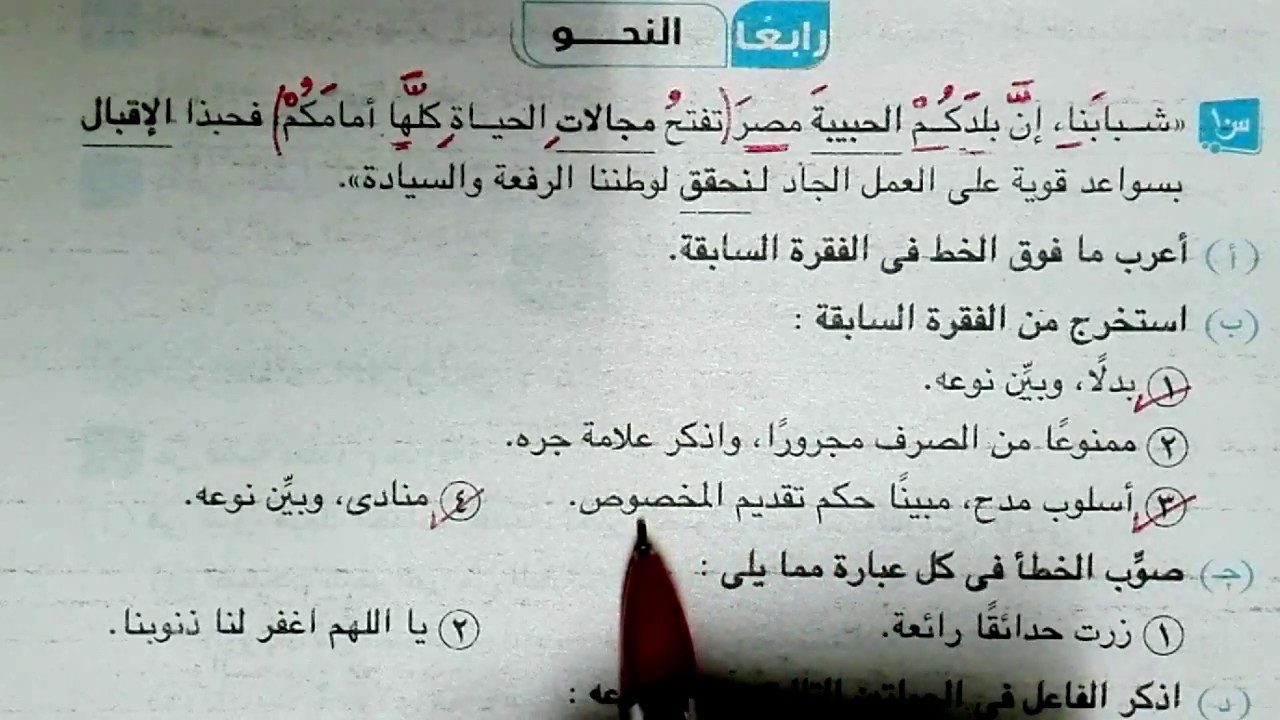 رابعًا النحـــو
س١ «شـبابَنا، إنَّ بلدَكُمْ الحبيبةَ مصرَ (تفتحُ مجالاتِ الحياةِ كلِّها أمامَكُمْ) فحبذا الإقبال
بسواعد قوية على العمل الجاد لنحقق لوطننا الرفعة والسيادة».
(أ) أعرب ما فوق الخط فى الفقرة السابقة.
(ب) استخرج من الفقرة السابقة :
١ بدلًا، وبيِّن نوعه.
٢ ممنوعًا من الصرف مجرورًا، واذكر علامة جره.
٣ أسلوب مدح، مبينًا حكم تقديم المخصوص. ٤ منادى، وبيِّن نوعه.
(جـ) صوِّب الخطأ فى كل عبارة مما يلى :
١ زرت حدائقًا رائعة. ٢ يا اللهم اغفر لنا ذنوبنا.
(د) اذكر الفاعل فى الجملتين